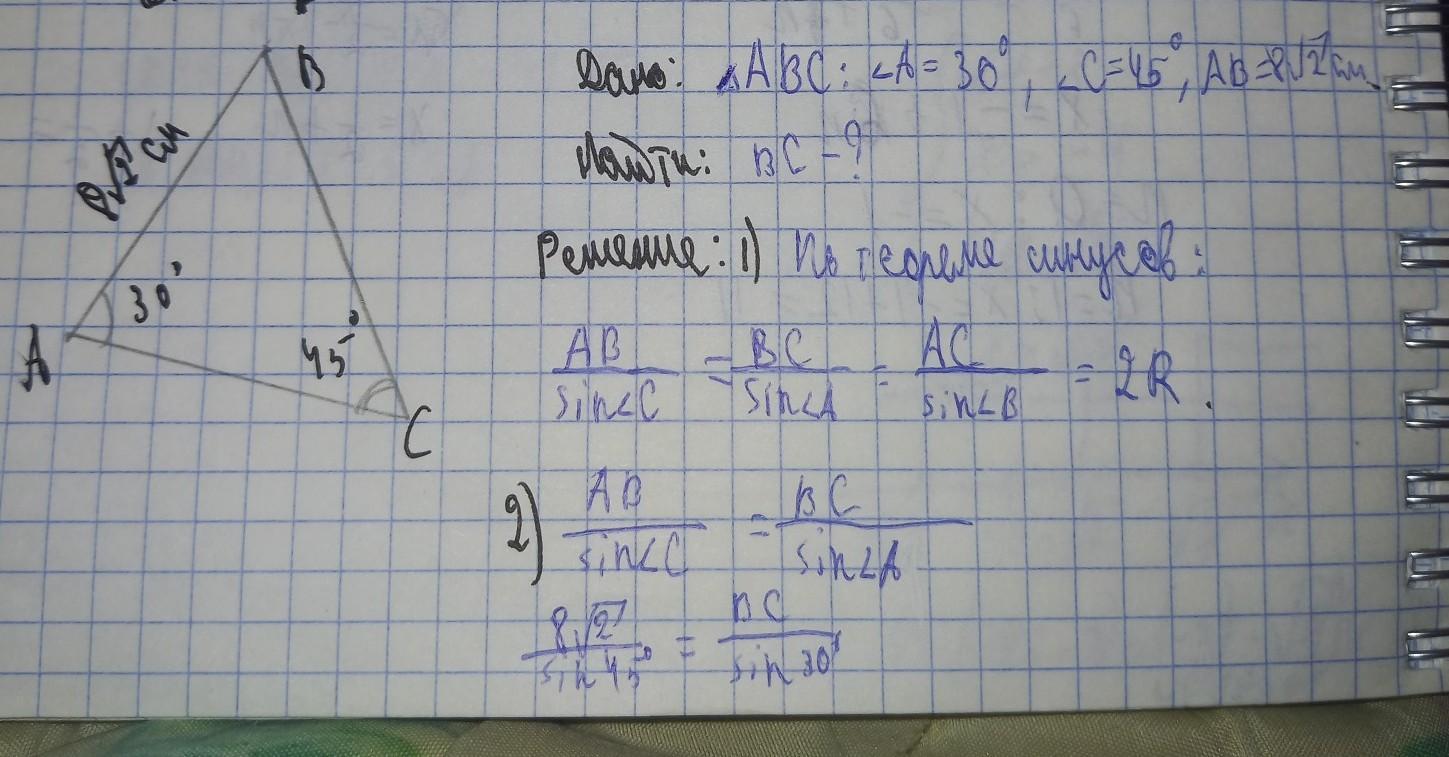 B
8√2 см
30°
A
45°
C
Дано: △ABC: ∠A = 30°, ∠C = 45°, AB = 8√2 см.
Найти: BC - ?
Решение: 1) По теореме синусов:
AB/sin∠C = BC/sin∠A = AC/sin∠B = 2R.
2) AB/sin∠C = BC/sin∠A
8√2/sin 45° = BC/sin 30°